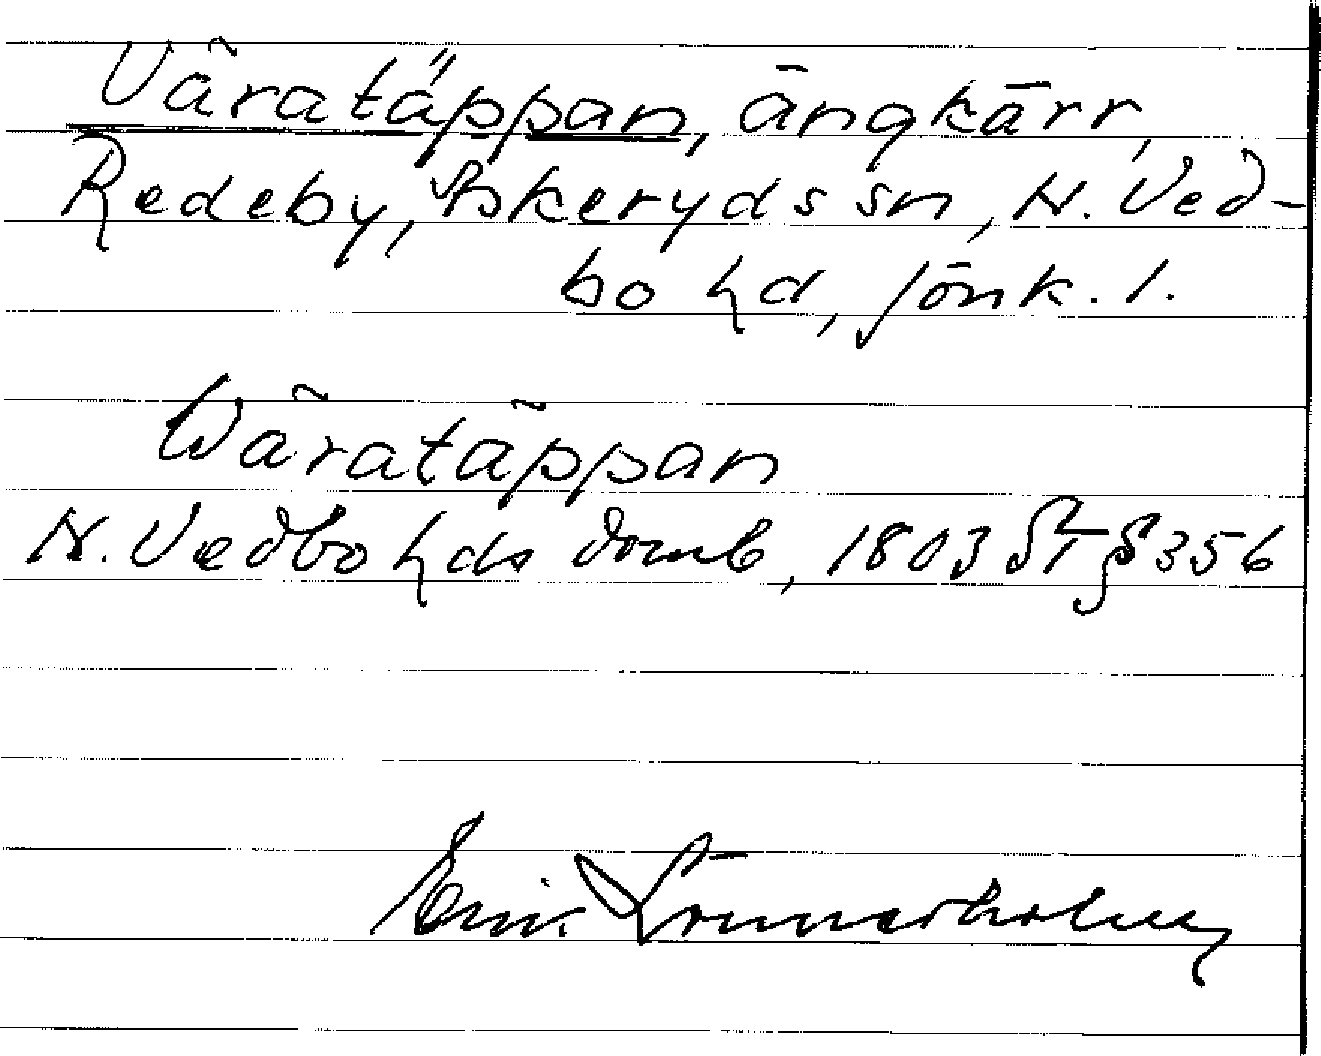 Våratäppan, ängkärr,
Redeby, Askeryds sn, N. Ved-
bo hd, Jönk. l.
Wåratäppan
N. Vedbo hds domb, 1803 ST § 356
Eric Lönnerholm